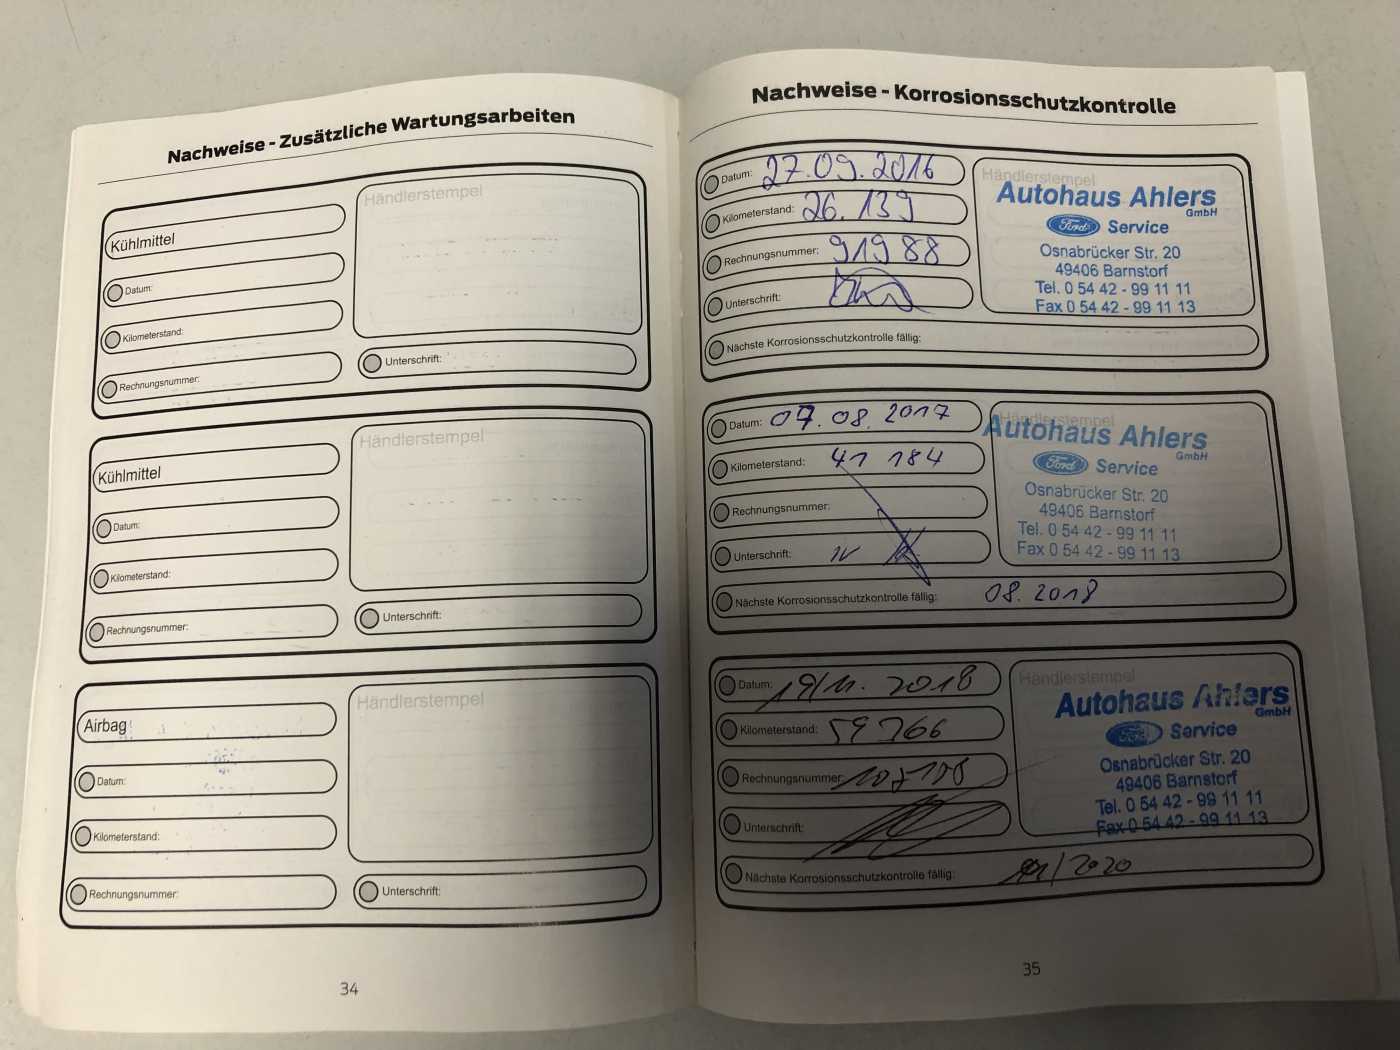 Nachweise - Zusätzliche Wartungsarbeiten
Kühlmittel
Datum:
Kilometerstand:
Rechnungsnummer:
Händlerstempel
Unterschrift:
Kühlmittel
Datum:
Kilometerstand:
Rechnungsnummer:
Händlerstempel
Unterschrift:
Airbag
Datum:
Kilometerstand:
Rechnungsnummer:
Händlerstempel
Unterschrift:
34
Nachweise - Korrosionsschutzkontrolle
Datum: 27.09.2016
Kilometerstand: 26.139
Rechnungsnummer: 91988
Unterschrift:
Händlerstempel
Autohaus Ahlers
GmbH
Ford Service
Osnabrücker Str. 20
49406 Barnstorf
Tel. 0 54 42 - 99 11 11
Fax 0 54 42 - 99 11 13
Nächste Korrosionsschutzkontrolle fällig:
Datum: 07.08.2017
Kilometerstand: 41 184
Rechnungsnummer:
Unterschrift:
Händlerstempel
Autohaus Ahlers
GmbH
Ford Service
Osnabrücker Str. 20
49406 Barnstorf
Tel. 0 54 42 - 99 11 11
Fax 0 54 42 - 99 11 13
Nächste Korrosionsschutzkontrolle fällig: 08.2018
Datum: 19/11.2018
Kilometerstand: 59766
Rechnungsnummer:
Unterschrift:
Händlerstempel
Autohaus Ahlers
GmbH
Ford Service
Osnabrücker Str. 20
49406 Barnstorf
Tel. 0 54 42 - 99 11 11
Fax 0 54 42 - 99 11 13
Nächste Korrosionsschutzkontrolle fällig:
35